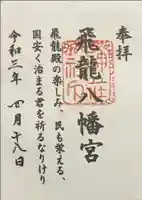 奉拝
飛龍八幡宮
飛龍殿の楽しみ、民も栄える、
国安く治まる君を祈るなりけり
令和三年 四月十八日